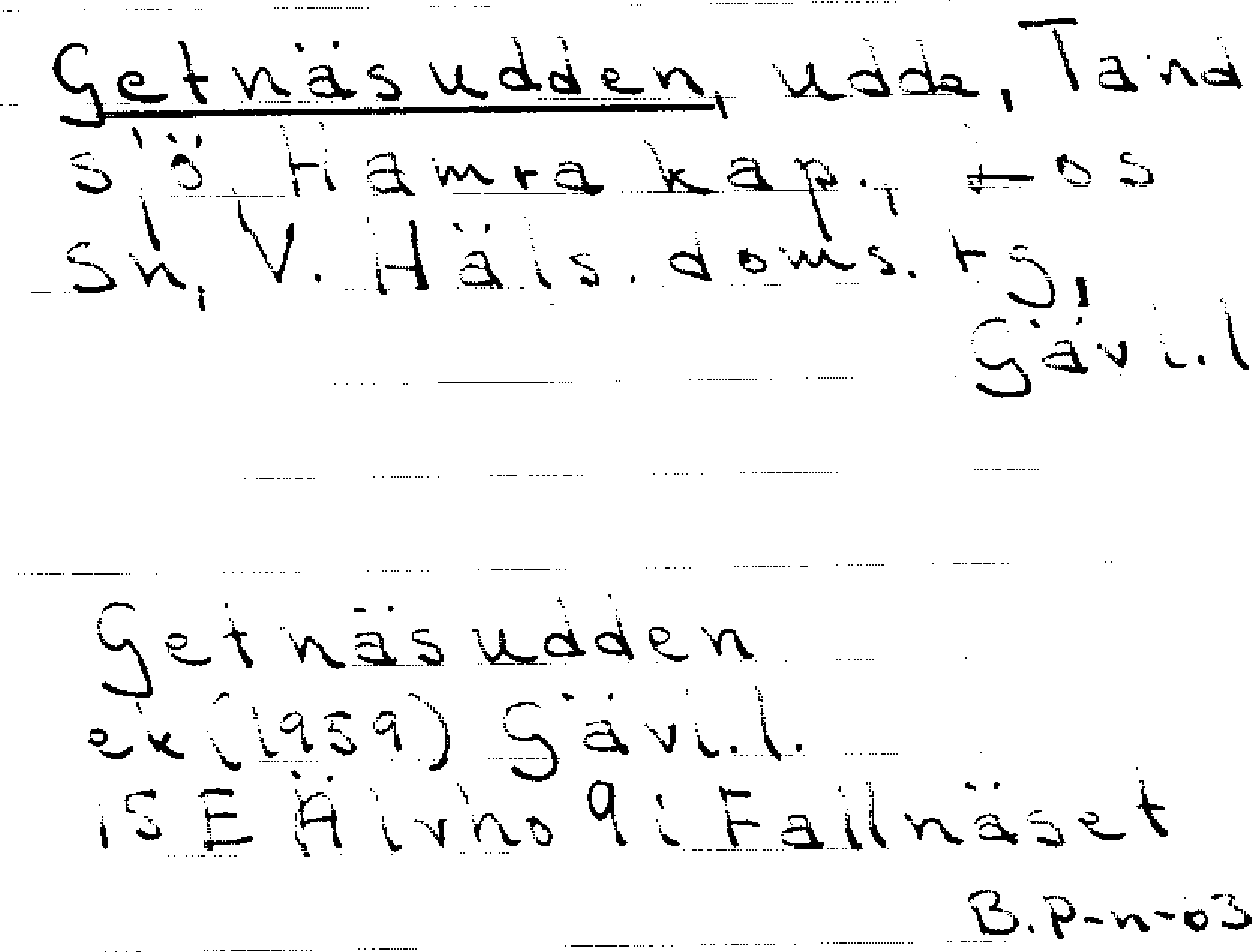 Getnäsudden, udde, Tand
sjö Hamra kap., Los
Sn, V. Häls. doms. tg,
Gävl. l
Getnäsudden
ex (1959) Gävl. l.
i S E Ä no 9 i Fallnäset
B.P-n-03